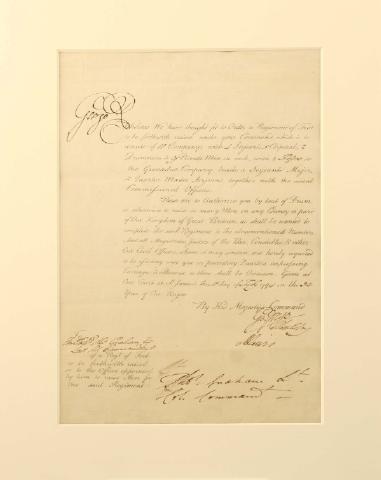 George R
Whereas We have thought fit to Order a Regiment of Foot
to be forthwith raised under your Command which is to
consist of Companies with Serjeants, Corporals, 2
Drummers & Private Men in each, with 2 Fifers to
the Grenadier Company, besides a Serjeant Major,
& Quarter Master Serjeant, together with the usual
Commissioned Officers
These are to Authorize you by beat of Drum
or otherwise to raise so many Men in any County or part
of Our Kingdom of Great Britain as shall be wanted to
complete the said Regiment to the abovementioned Numbers
And all Magistrates, Justices of the Peace, Constables, & other
Our Civil Officers, whom it may concern are hereby required
to be assisting unto you in providing Quarters, impressing
Carriages & otherwise as there shall be Occasion. Given at
Our Court at St. James's this day of 1794 in the
Year of Our Reign
By His Majesty's Command
of a Regt of Foot
to be forthwith raised
or to the Officer appointed
by him to raise Men for
the said Regiment
Thos. Graham Lt.
Col. Command